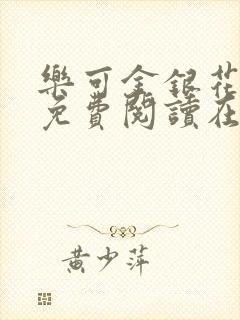 樂可金銀花
免費閱讀在
黃少萍